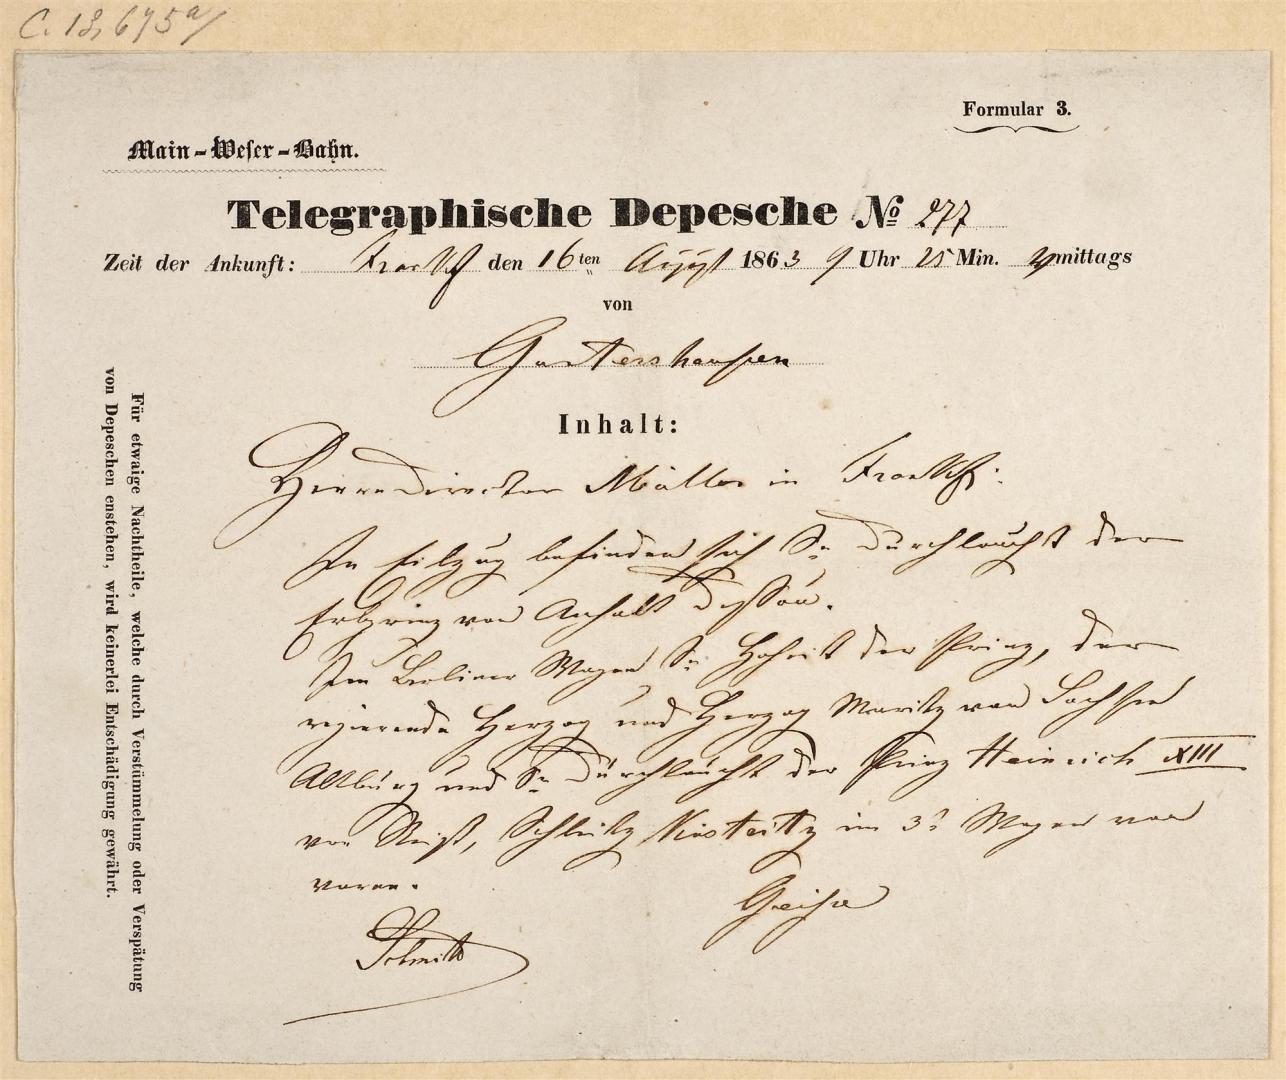 C. 13,675a/
Formular 3.
Main-Weser-Bahn.
Telegraphische Depesche No 277
Zeit der Ankunft: Frankf den 16ten August 1863 9 Uhr 25 Min. Vmittags
von
Guntershausen
Inhalt:
Herrn Director Müller in Frankf:
Im Eilzug befinden sich Sr Durchlaucht der
Erbprinz von Anhalt Dessau.
Im Berliner Wagen Sr Hoheit der Prinz, der
regierende Herzog und Herzog Moritz von Sachsen
Altburg und Sr Durchlaucht der Prinz Heinrich XIII
von Reuß, Schleitz Köstritz im 3t Wagen von
vorne.
Geise
Schmitt
Für etwaige Nachtheile, welche durch Verstümmelung oder Verspätung
von Depeschen enstehen, wird keinerlei Entschädigung gewährt.